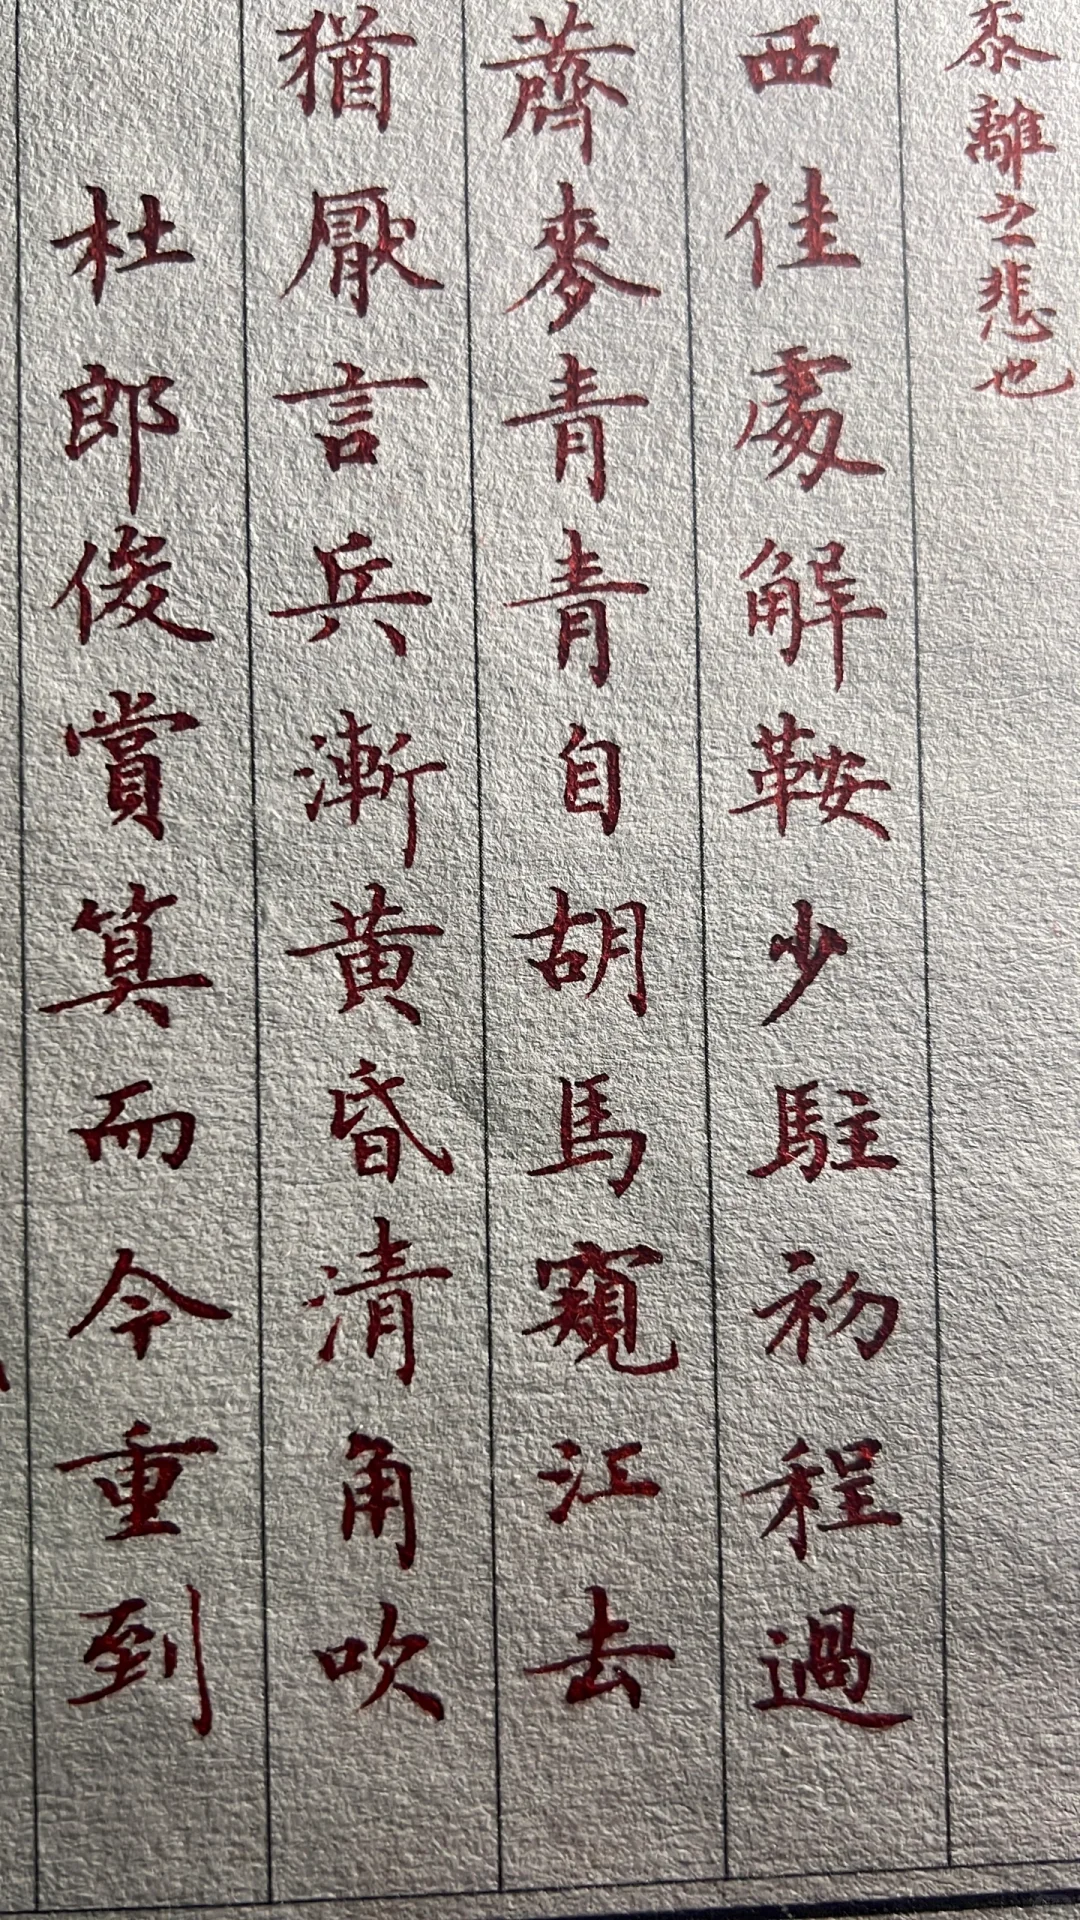 黍離之悲也
西佳處解鞍少駐初程過
薺麥青青自胡馬窺江去
猶厭言兵漸黃昏清角吹
杜郎俊賞算而今重到